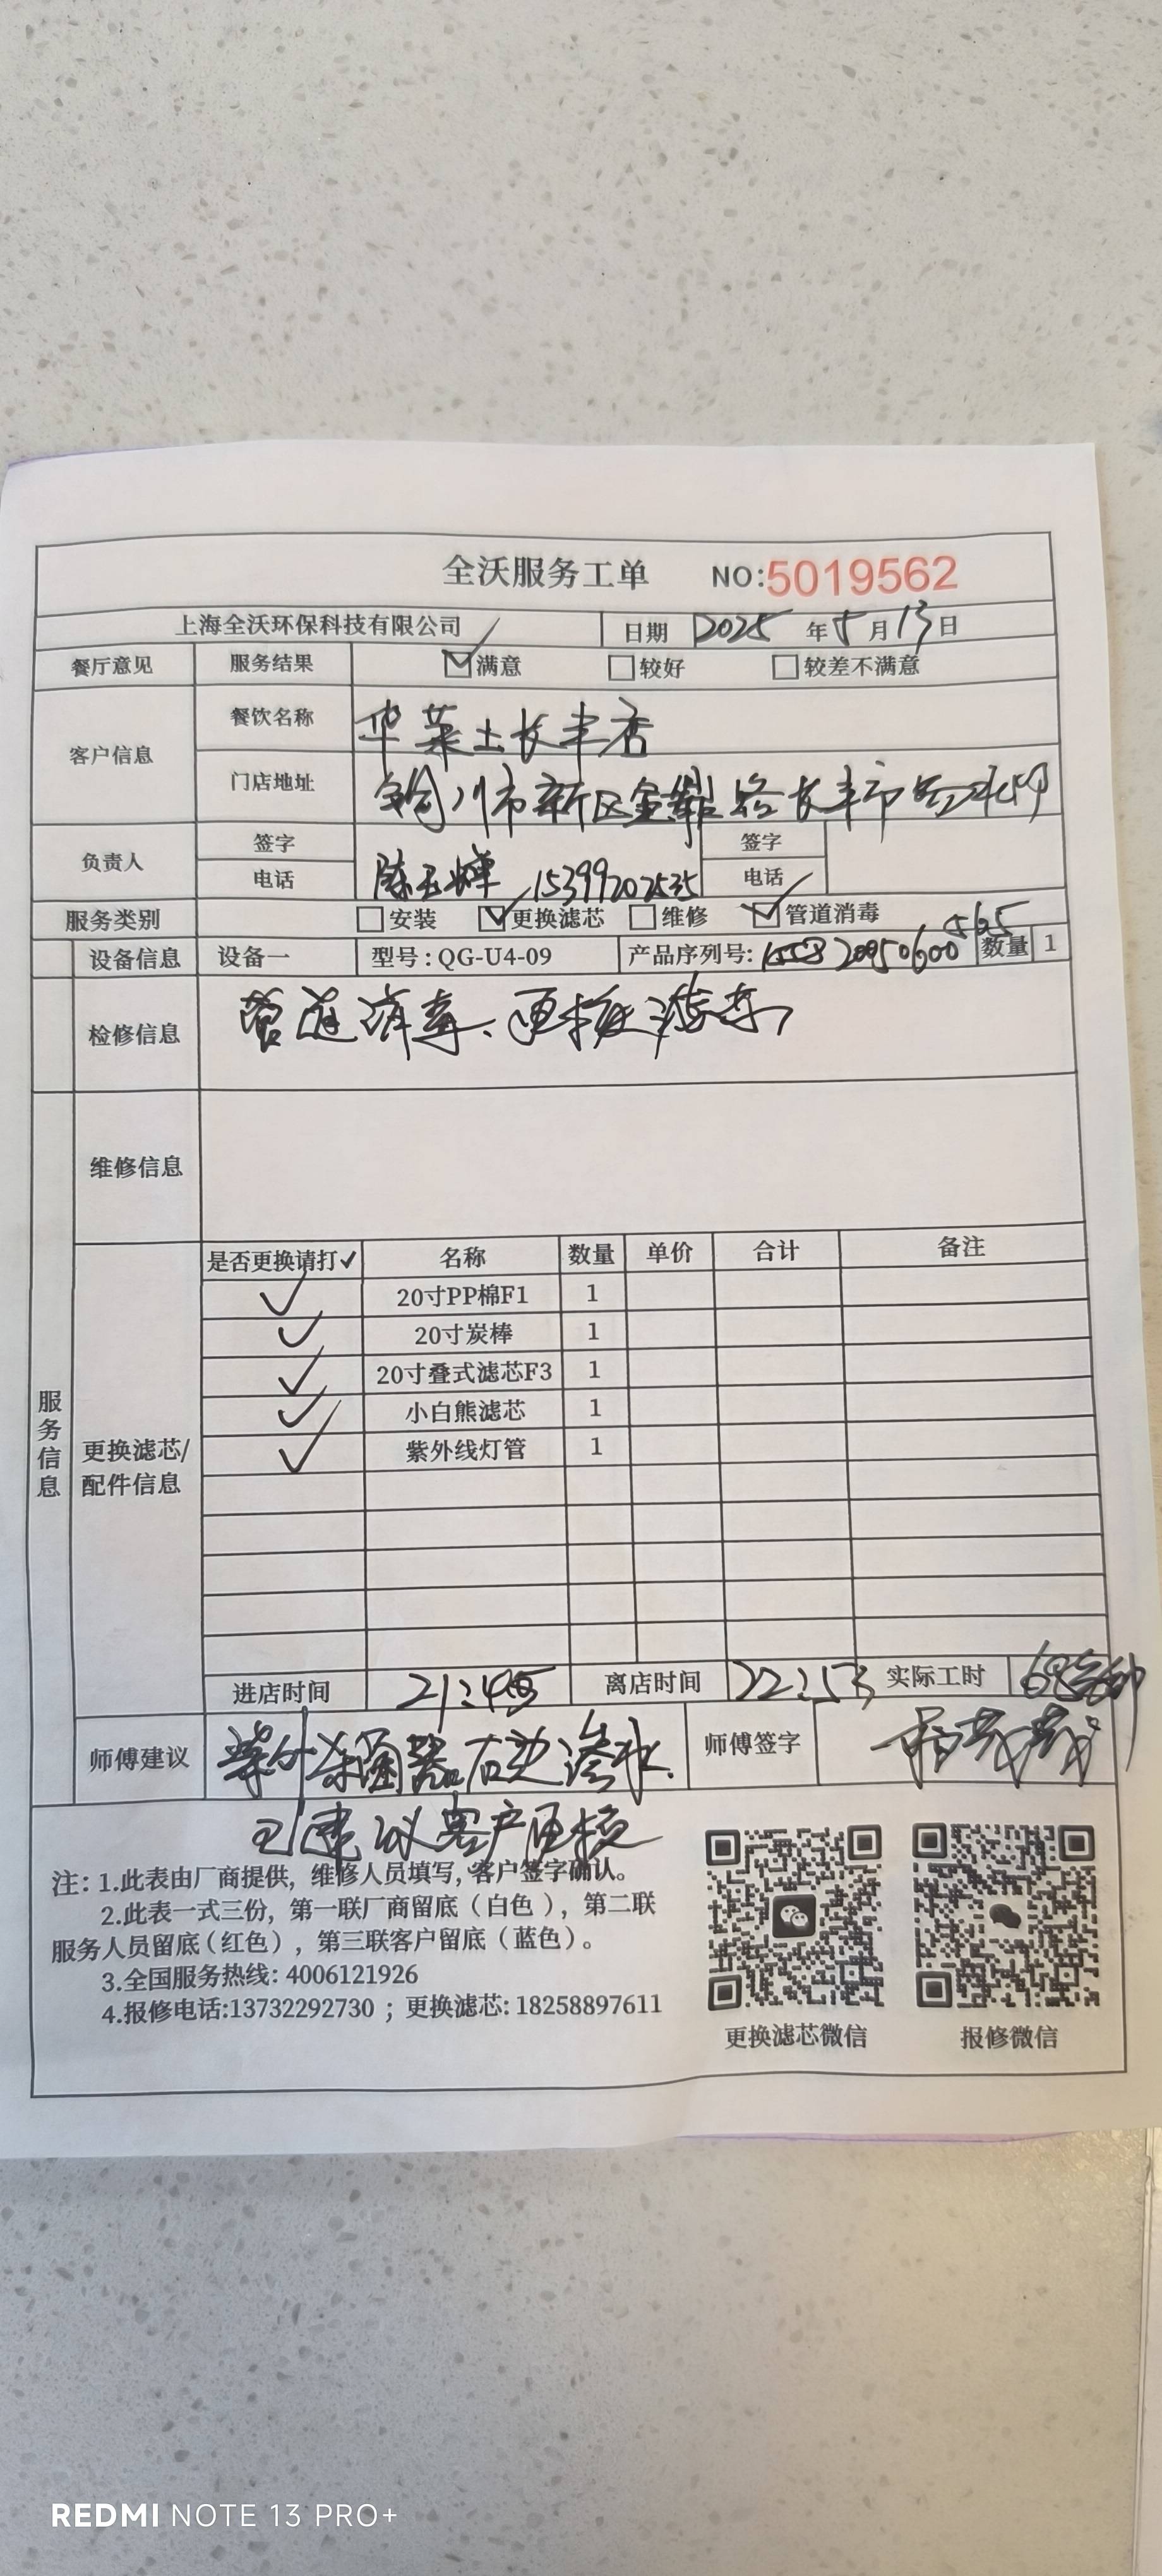 全沃服务工单 NO:5019562
上海全沃环保科技有限公司 日期 2025年5月13日
餐厅意见 服务结果 满意 较好 较差不满意
客户信息
餐饮名称 华莱士长丰店
门店地址 川市新区金 路长丰市
负责人
签字 签字
陈玉婵 15399202535
电话 电话
服务类别 安装 更换滤芯 维修 管道消毒
设备信息 设备一 型号:QG-U4-09 产品序列号: 数量 1
检修信息 管道消毒、更换滤芯,
维修信息
服务信息
更换滤芯/配件信息
是否更换请打✓ 名称 数量 单价 合计 备注
✓ 20寸PP棉F1 1
✓ 20寸炭棒 1
✓ 20寸叠式滤芯F3 1
✓ 小白熊滤芯 1
✓ 紫外线灯管 1
进店时间 21:45 离店时间 22:53 实际工时 68分钟
师傅建议 紫外杀菌器右边渗水. 师傅签字
已建议客户更换
注: 1.此表由厂商提供, 维修人员填写, 客户签字确认。
2.此表一式三份, 第一联厂商留底(白色), 第二联
服务人员留底(红色), 第三联客户留底(蓝色)。
3.全国服务热线: 4006121926
4.报修电话:13732292730 ; 更换滤芯: 18258897611
更换滤芯微信 报修微信
REDMI NOTE 13 PRO+